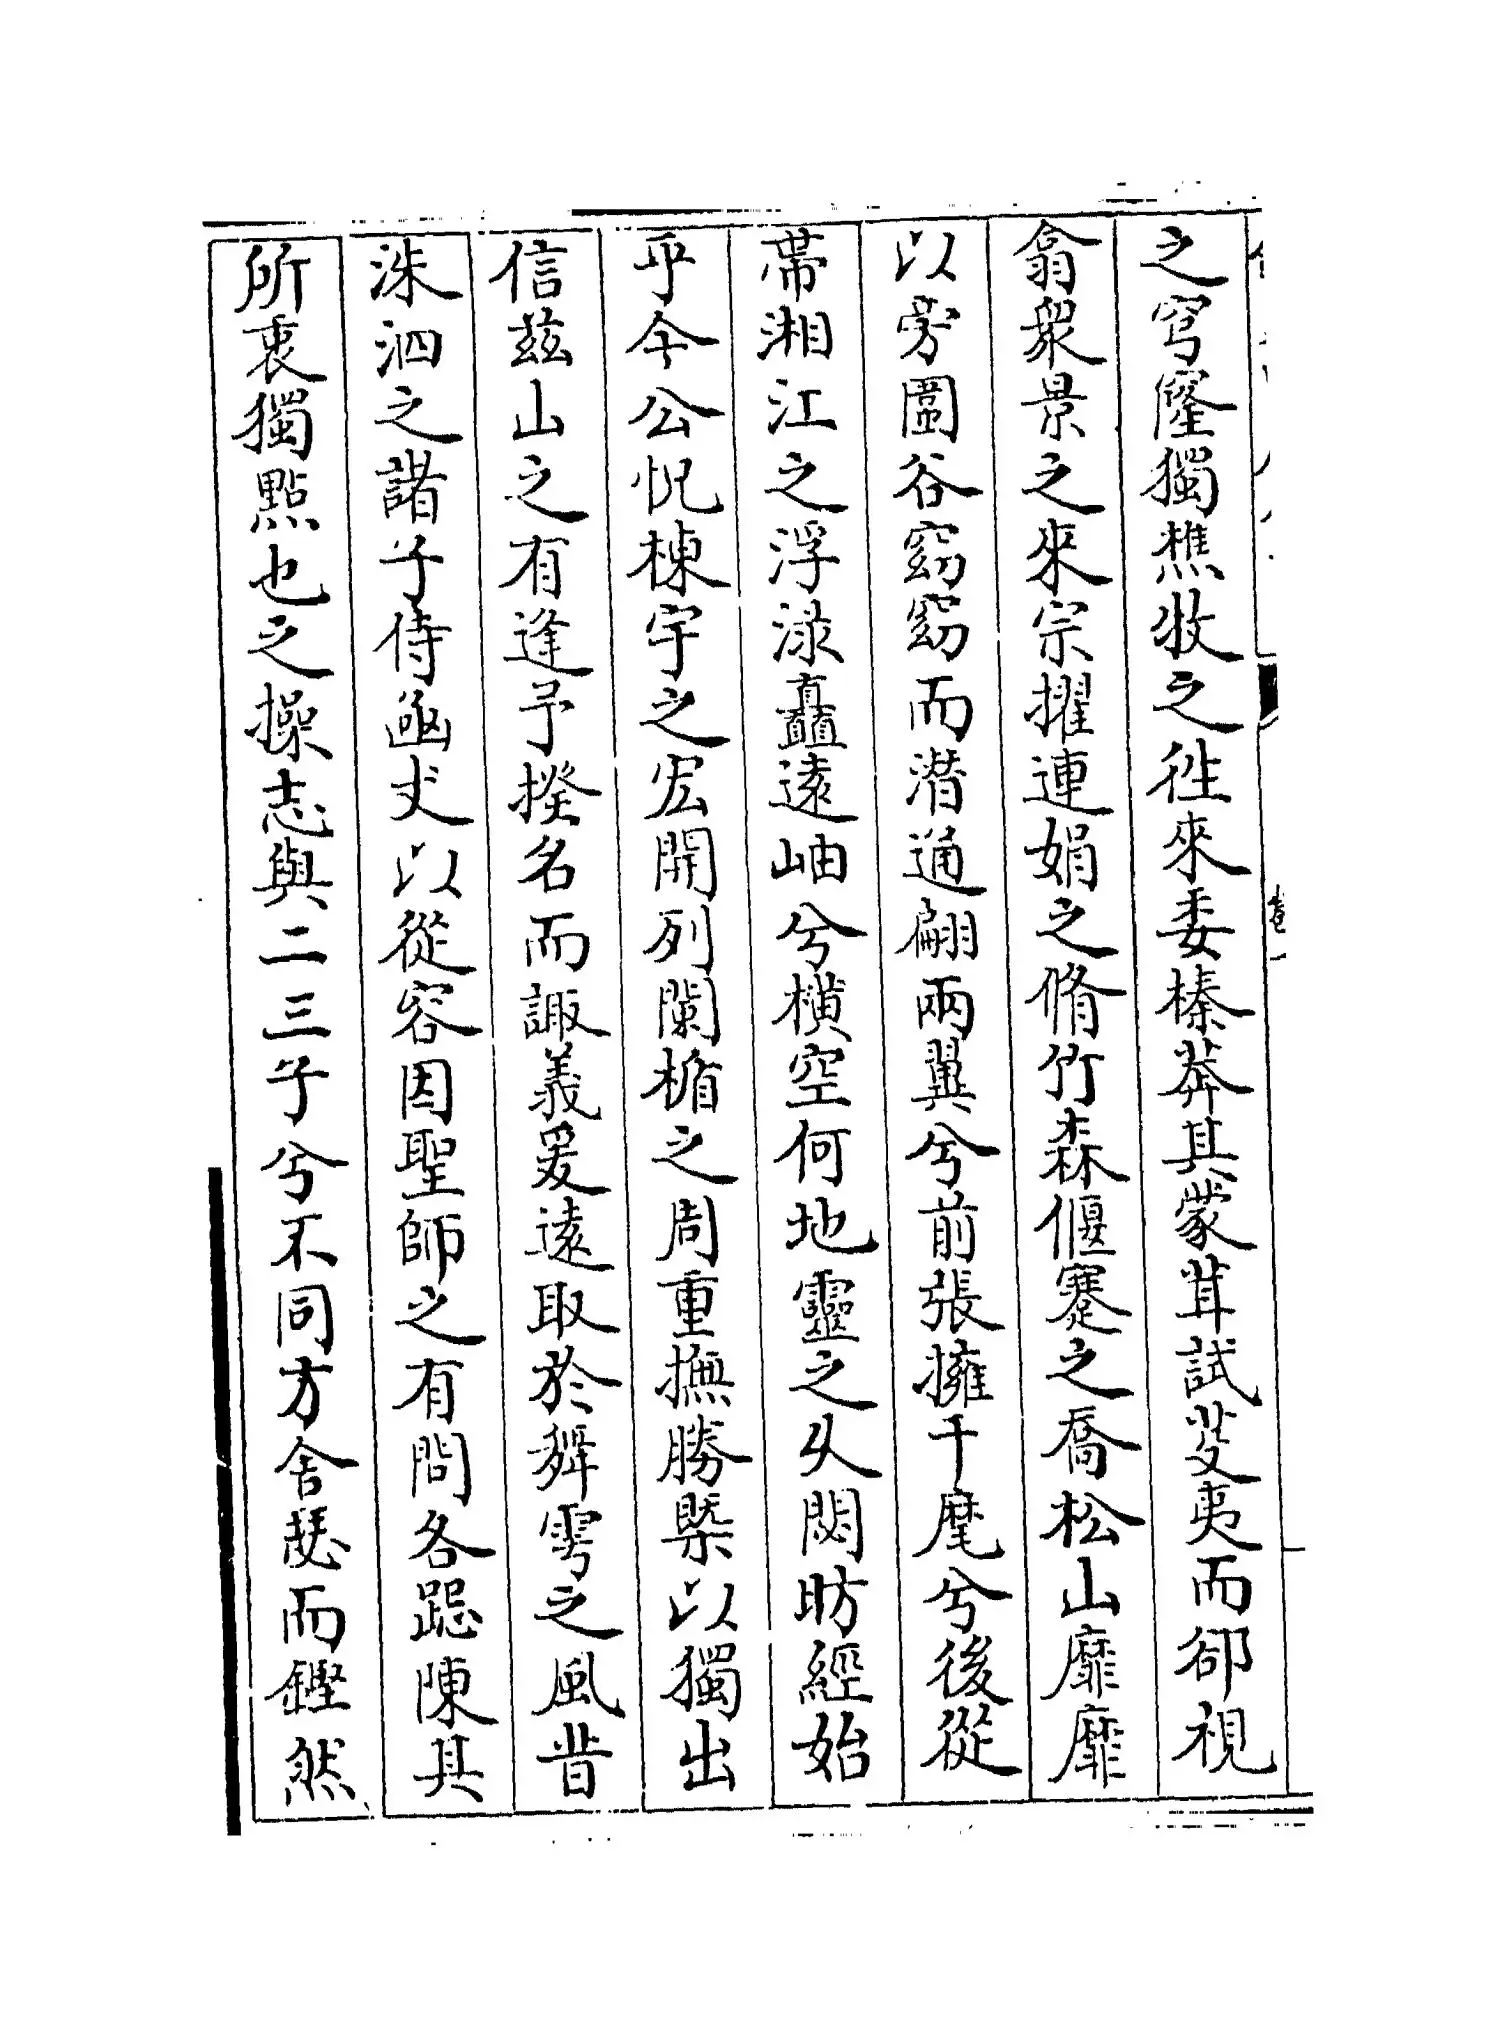 之穹窿獨樵牧之徃來委榛莽其蒙茸試芟夷而卻視
翕衆景之來宗擢連娟之脩竹森偃蹇之喬松山靡靡
以旁圍谷窈窈而潛通翩兩翼兮前張擁千麾兮後從
帶湘江之浮渌矗遠岫兮横空何地靈之久閟昉經始
乎今公怳棟宇之宏開列闌楯之周重撫勝槩以獨出
信兹山之有逢予揆名而諏義爰逺取於舞雩之風昔
洙泗之諸子侍函丈以從容因聖師之有問各踞陳其
所衷獨㸃也之操志與二三子兮不同方舍瑟而鏗然